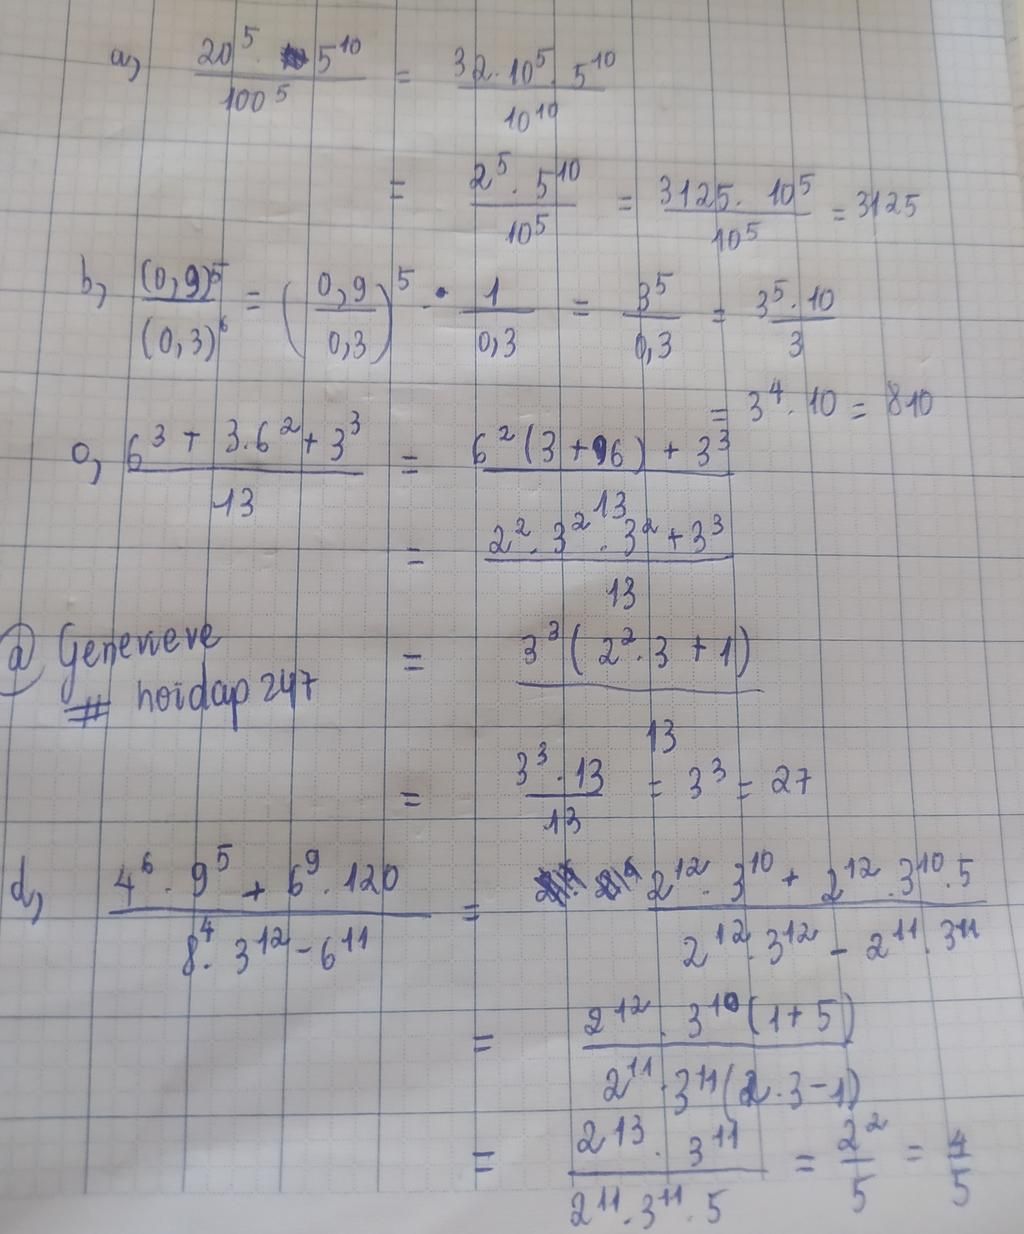 a, 20^5 . 5^10 / 100^5 = 32.10^5 . 5^10 / 10^10
= 2^5 . 5^10 / 10^5 = 3125. 10^5 / 10^5 = 3125
b, (0,9)^5 / (0,3)^6 = (0,9 / 0,3)^5 . 1 / 0,3 = 3^5 / 0,3 = 3^5 . 10 / 3
= 3^4 . 10 = 810
c, 6^3 + 3.6^2 + 3^3 / 13 = 6^2 (3 + 6) + 3^3 / 13
= 2^2 . 3^2 . 3^2 + 3^3 / 13
@ Genevieve = 3^3 ( 2^2 . 3 + 1) / 13
# hoidap 247
= 3^3 . 13 / 13 = 3^3 = 27
d, 4^6 . 9^5 + 6^9 . 120 / 8^4 . 3^12 - 6^11 = 2^12 . 3^10 + 2^12 . 3^10 . 5 / 2^12 . 3^12 - 2^11 . 3^11
= 2^12 . 3^10 (1 + 5) / 2^11 . 3^11 (2 . 3 - 1)
= 2^13 . 3^11 / 2^11 . 3^11 . 5 = 2^2 / 5 = 4 / 5